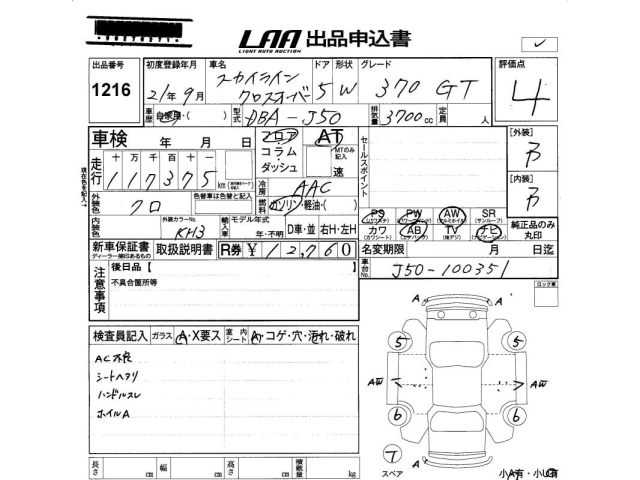 LAA 出品申込書
LIGHT AUTO AUCTION
出品番号 初度登録年月 車名 ドア 形状 グレード 評価点
1216 21年9月 スカイライン クロスオーバー 5 W 370 GT 4
車歴 自家用・( ) 型式 DBA-J50 排気量 3700cc 定員 人
車検 年 月 日 フロア・コラム・ダッシュ AT MTのみ記入 速 セールスポイント 【外装】
走行 十 万 千 百 十
117375 km 冷房 AAC 【内装】
現在色を記入
外装色 クロ 色替車は色替と記入 燃料 ガソリン・軽油・( )
PS (パワステ) PW (パワーウインド) AW (アルミホイル) SR (サンルーフ) 純正品のみ丸印
内装色 外装カラーNo. KH3 輸入車 モデル年式 年・不明 D車・並 右H・左H カワ (カワシート) AB (エアバッグ) TV (純デジ) ナビ (ナビゲーション)
新車保証書 ディーラー捺印あるもの 取扱説明書 R券 ¥12,760 名変期限 月 日迄
注意事項 後日品【 車台No. J50-100351
不具合箇所等 ロック車
検査員記入 ガラス A・X要ス 室内シート A・コゲ・穴・汚れ・破れ
AC不良
シートヘタリ
ハンドルスレ
ホイルA
5 5
AW AW
6 6
T
スペア 小A有・小U有
長さ cm 幅 cm 高さ cm 積載量 kg